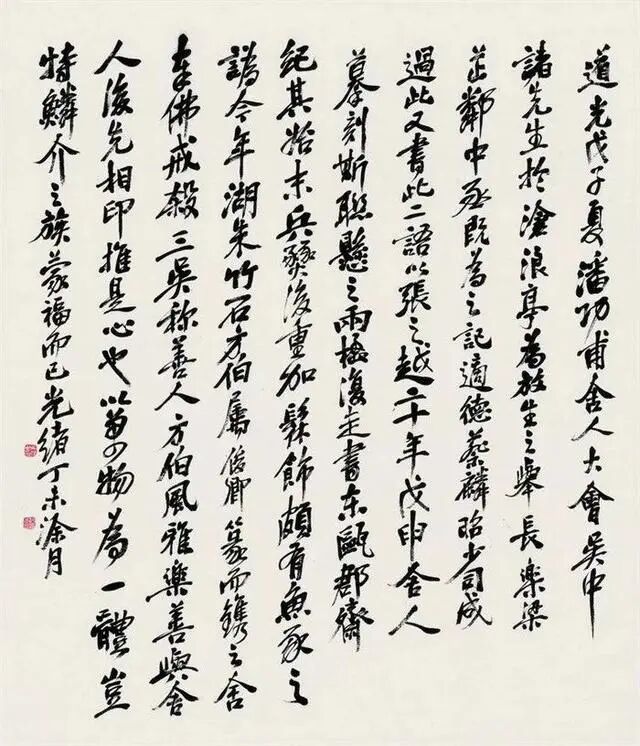 道光戊子夏潘功甫舍人大會吳中
諸先生於滄浪亭為放生之舉長樂梁
茞鄰中丞既為之記適德蔡麟昭少司成
過此又書此二語以張之越二十年戊申舍人
摹刻斯聯懸之兩楹復走書東甌郡齋
紀其始末兵燹後重加髹飾頗有魚豕之
譌今年湖朱竹石方伯屬俊卿篆而鐫之舍
奉佛戒殺三吳称善人方伯風雅樂善與舍
人後先相印推是心也以萬物為一體豈
特鱗介之族蒙福而已光緒丁未涂月